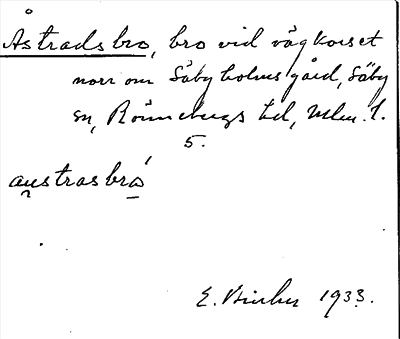 Åstradsbro, bro vid vägkorset
norr om Säbyholms gård, Säby
sn, Rönnebergs hd, Mlm. l.
5.
austrasbro
E. 1933.